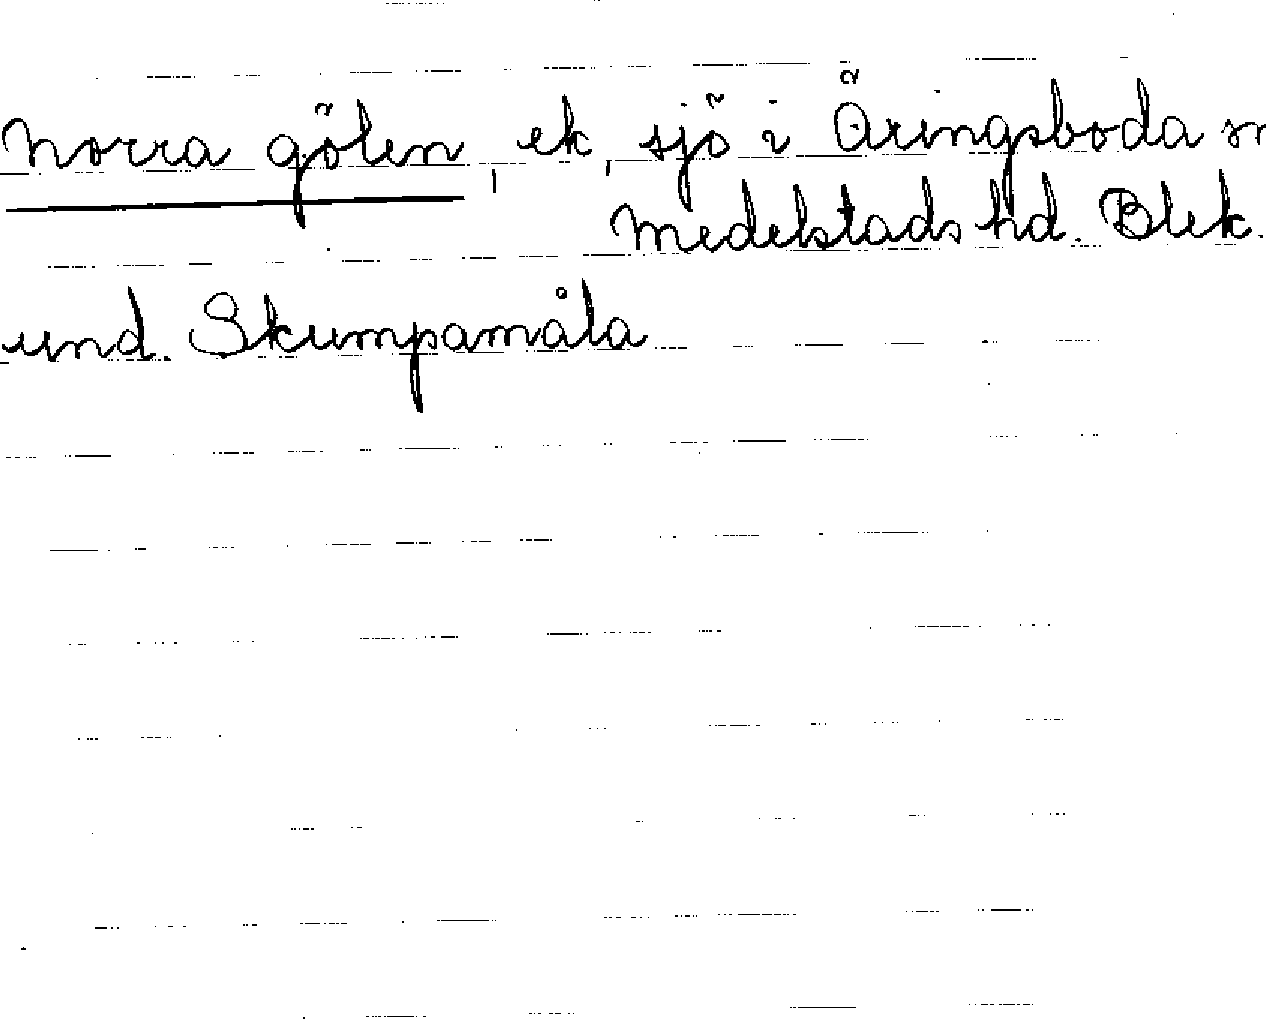 Norra gölen, ek, sjö i Äringsboda
Medelstads hd. Blek.
und. Skumpamåla